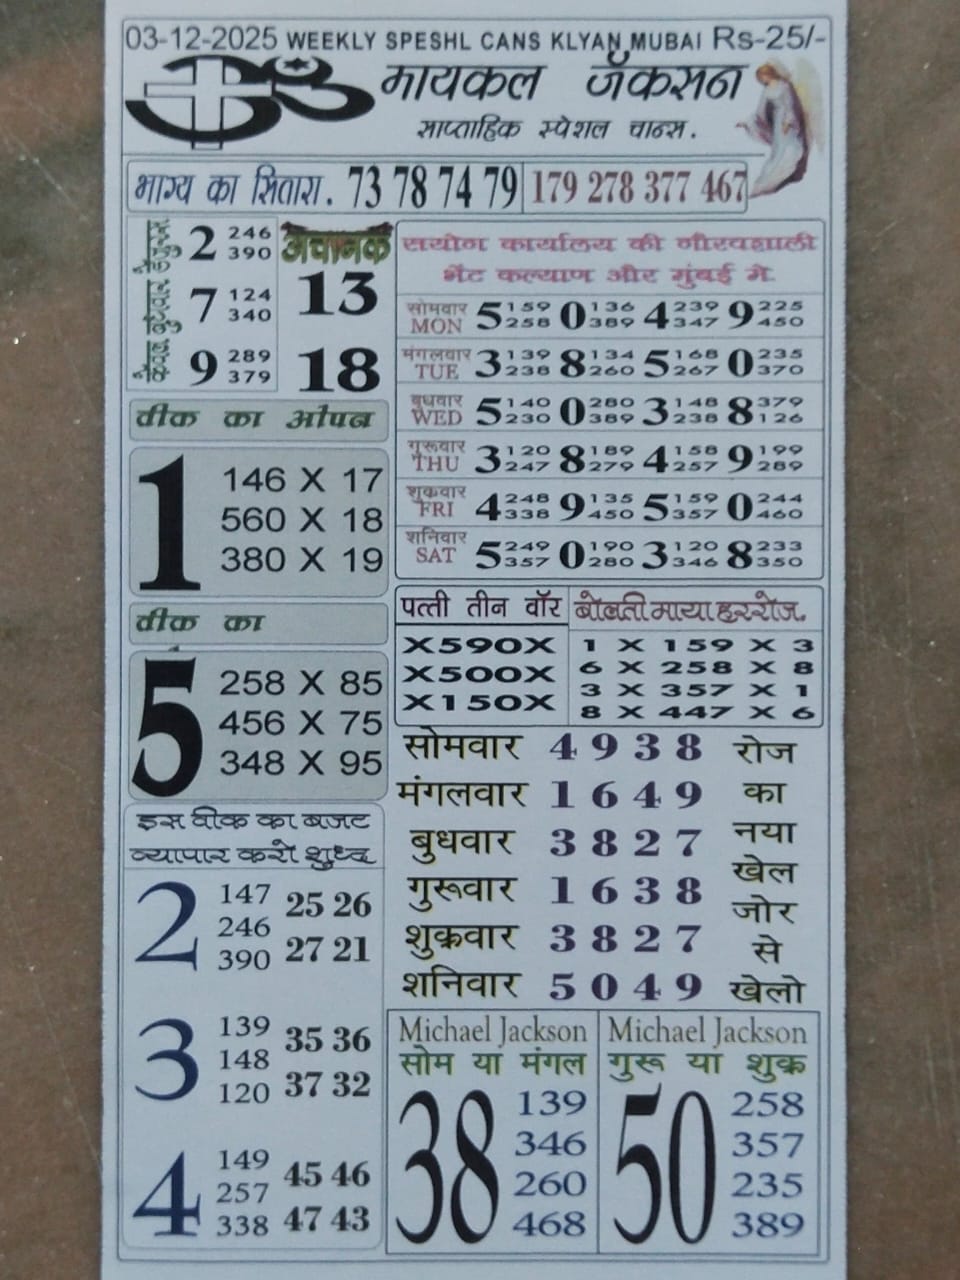 03-12-2025 WEEKLY SPESHL CANS KLYAN MUBAI Rs-25/-
मायकल जॅकसन
साप्ताहिक स्पेशल चान्स.
भाग्य का सितारा. 73 78 74 79 179 278 377 467
2 246 390
7 124 340
9 289 379
अचानक
13
18
वीक का ओपन
1
146 X 17
560 X 18
380 X 19
वीक का
5
258 X 85
456 X 75
348 X 95
इस वीक का बजट
व्यापार करो शुध्द
2
147 25 26
246
390 27 21
3
139 35 36
148
120 37 32
4
149 45 46
257
338 47 43
सयोग कार्यालय की गौरवशाली
भेंट कल्याण और मुंबई मे.
सोमवार MON 5 159 258 0 136 389 4 239 347 9 225 450
मंगलवार TUE 3 139 238 8 134 260 5 168 267 0 235 370
बुधवार WED 5 140 230 0 280 389 3 148 238 8 379 126
गुरूवार THU 3 120 247 8 189 279 4 158 257 9 199 289
शुक्रवार FRI 4 248 338 9 135 450 5 159 357 0 244 460
शनिवार SAT 5 249 357 0 190 280 3 120 346 8 233 350
पत्ती तीन वॉर
X590X
X500X
X150X
बोलती माया हररोज.
1 X 159 X 3
6 X 258 X 8
3 X 357 X 1
8 X 447 X 6
सोमवार 4 9 3 8
मंगलवार 1 6 4 9
बुधवार 3 8 2 7
गुरूवार 1 6 3 8
शुक्रवार 3 8 2 7
शनिवार 5 0 4 9
रोज
का
नया
खेल
जोर
से
खेलो
Michael Jackson
सोम या मंगल
38
139
346
260
468
Michael Jackson
गुरू या शुक्र
50
258
357
235
389